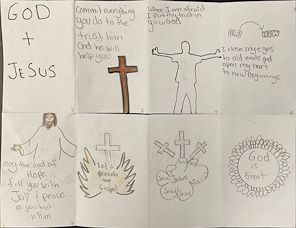 GOD
+
JESUS
Commit everything
you do to the
trust him
and he will
help you
When I am afraid
I put my trust in
you God
OLD
NEW
I close my eyes
to old ends and
open my heart
to new beginnings
may the God of
Hope
fill you with
Joy & peace
as you trust
in him
Let's
preach
the
Gospel
Jesus
God
is
Great